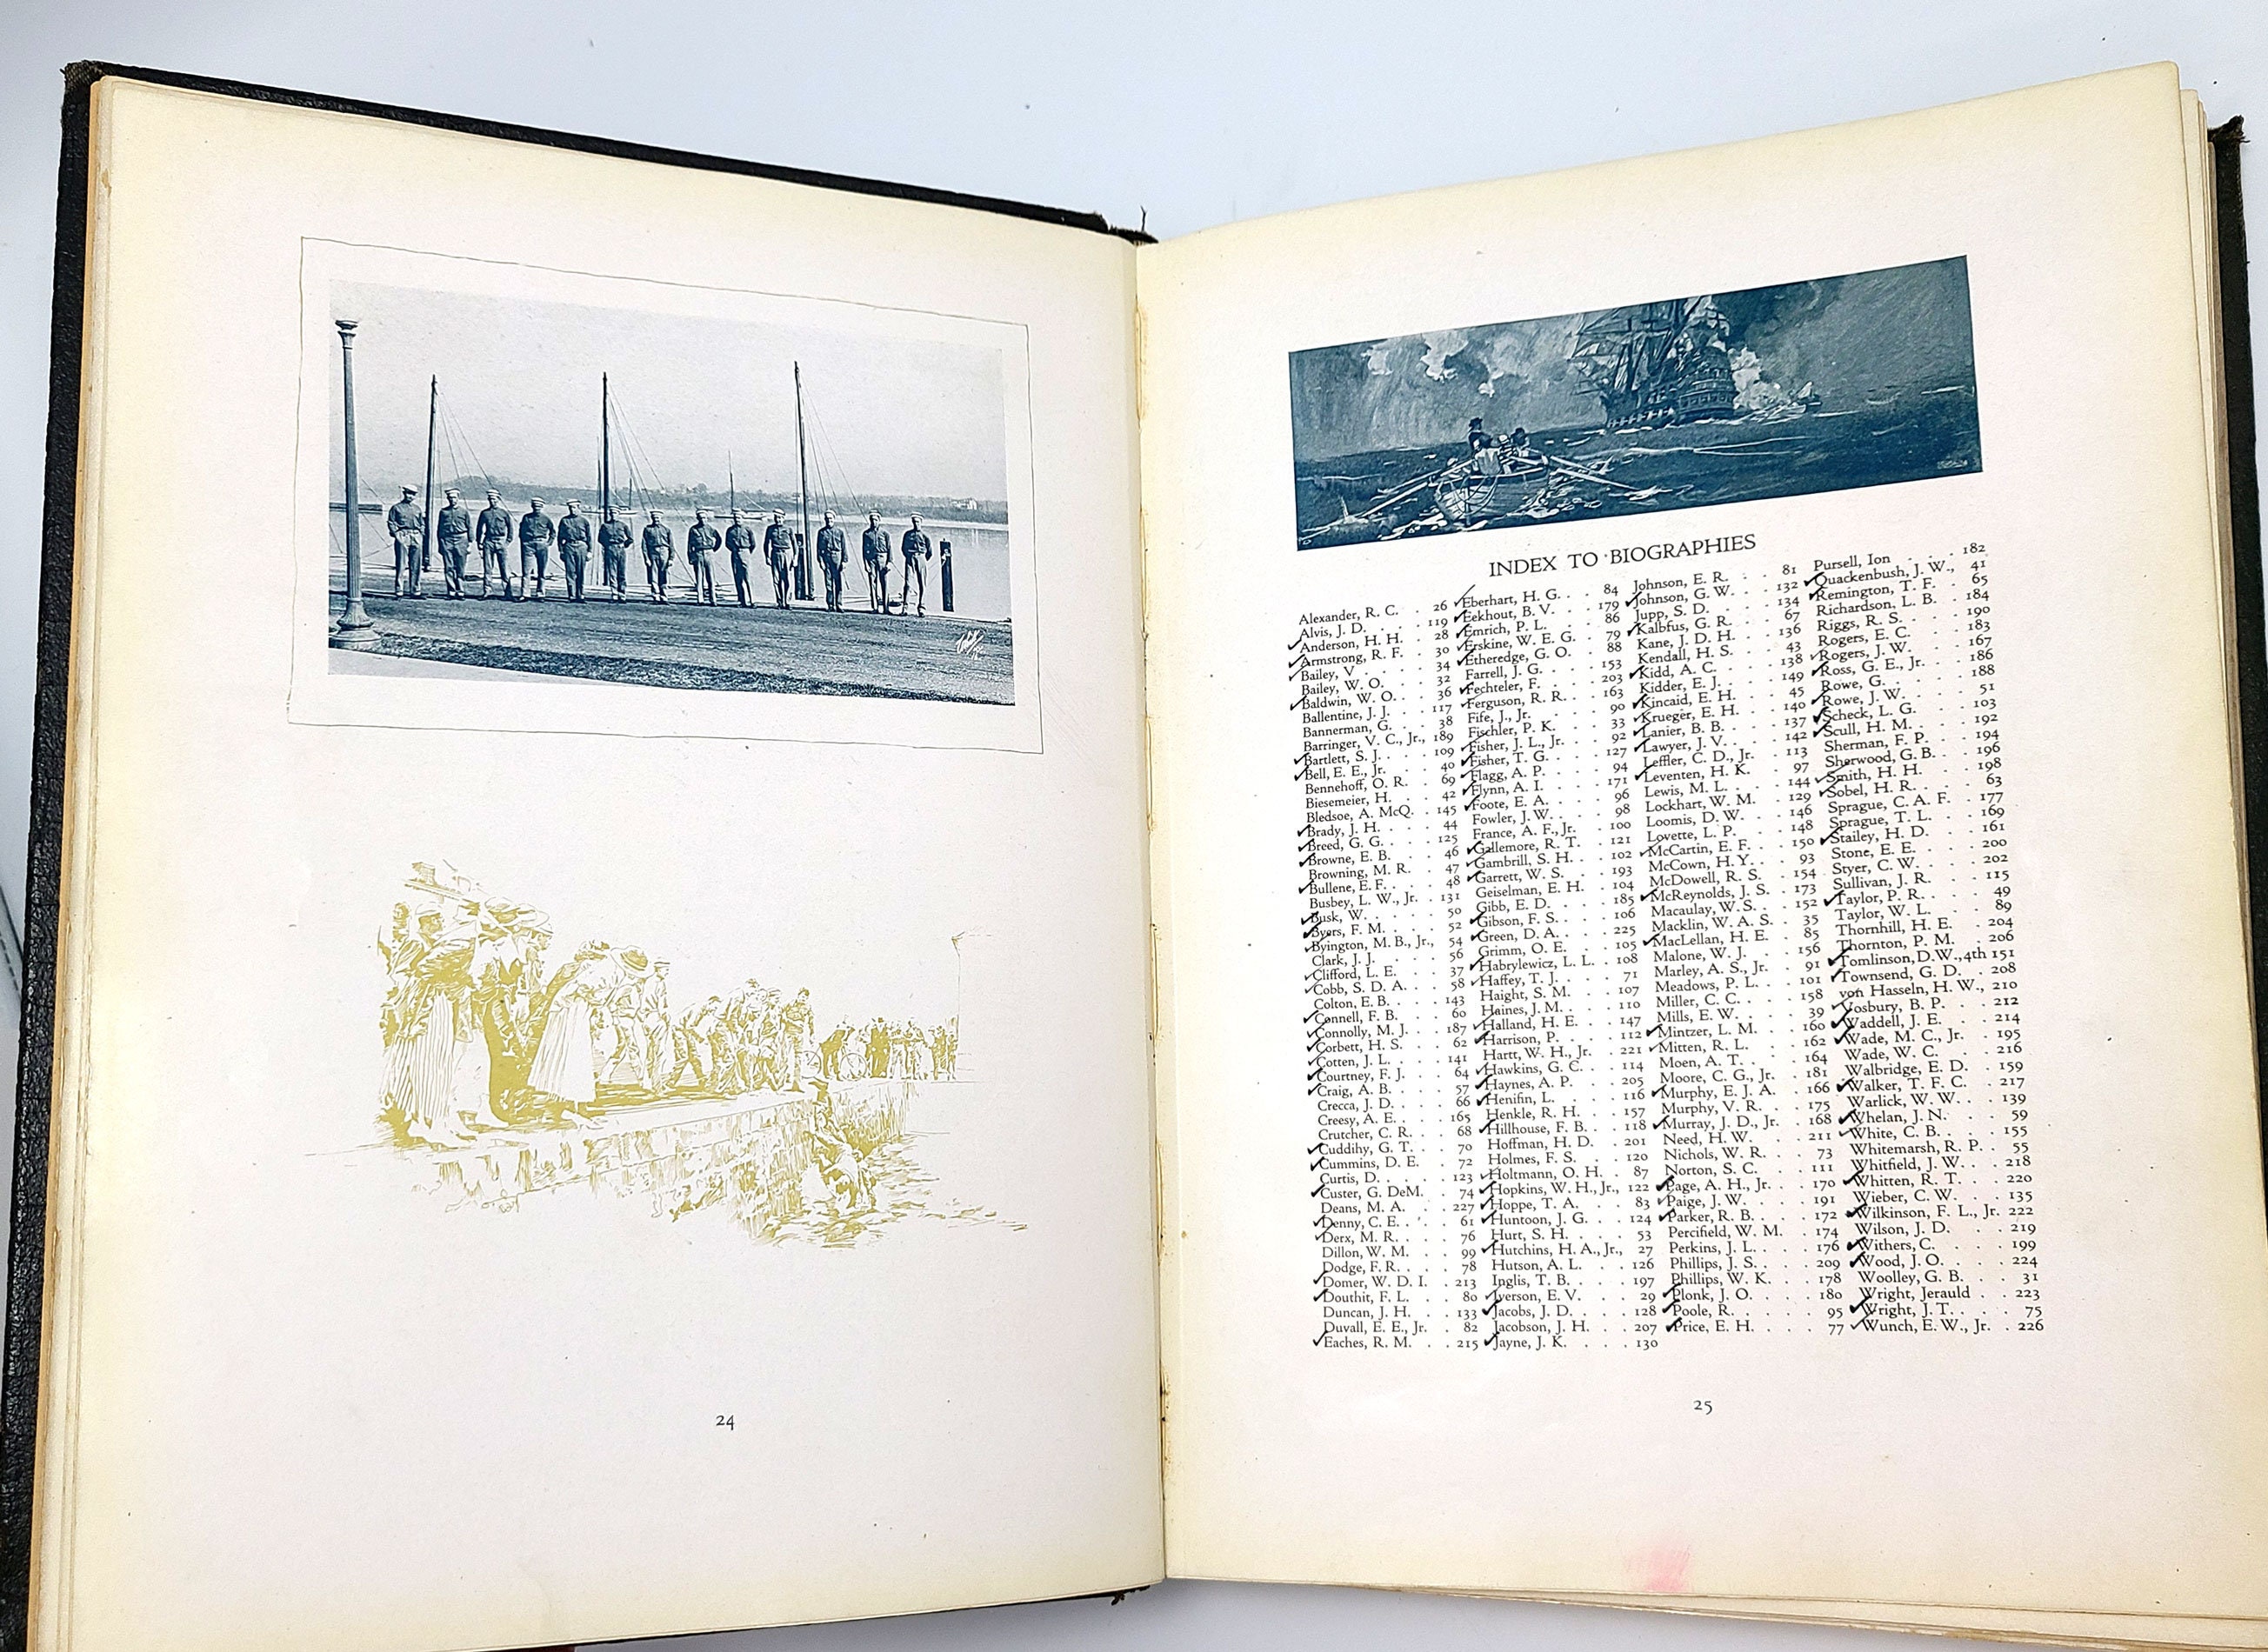 24
INDEX TO BIOGRAPHIES
Alexander, R. C. . 26
Alvis, J. D. . . . 119
Anderson, H. H. . 28
Armstrong, R. F. . 30
Bailey, V . . . . 34
Bailey, W. O. . . 32
Baldwin, W. O. . . 36
Ballentine, J. J. . . 117
Bannerman, G. . . 38
Barringer, V. C., Jr., 189
Bartlett, S. J. . . . 109
Bell, E. E., Jr. . . 40
Bennehoff, O. R. . 69
Biesemeier, H. . . 42
Bledsoe, A. McQ. . 145
Brady, J. H. . . . 44
Breed, G. G. . . . 125
Browne, E. B. . . 46
Browning, M. R. . 47
Bullene, E. F. . . 48
Busbey, L. W., Jr. . 131
Busk, W. . . . . 50
Byers, F. M. . . . 52
Byington, M. B., Jr., 54
Clark, J. J. . . . 56
Clifford, L. E. . . 37
Cobb, S. D. A. . . 58
Colton, E. B. . . . 143
Connell, F. B. . . 60
Connolly, M. J. . . 187
Corbett, H. S. . . 62
Cotten, J. L. . . . 141
Courtney, F. J. . . 64
Craig, A. B. . . . 57
Crecca, J. D. . . . 66
Creesy, A. E. . . . 165
Crutcher, C. R. . . 68
Cuddihy, G. T. . . 70
Cummins, D. E. . 72
Curtis, D. . . . . 123
Custer, G. DeM. . 74
Deans, M. A. . . . 227
Denny, C. E. . . . 61
Derx, M. R. . . . 76
Dillon, W. M. . . 99
Dodge, F. R. . . . 78
Domer, W. D. I. . 213
Douthit, F. L. . . 80
Duncan, J. H. . . 133
Duvall, E. E., Jr. . 82
Eaches, R. M. . . 215
Eberhart, H. G. . . 84
Eekhout, B. V. . . 179
Emrich, P. L. . . 86
Erskine, W. E. G. . 79
Etheredge, G. O. . 88
Farrell, J. G. . . . 153
Fechteler, F. . . . 203
Ferguson, R. R. . . 163
Fife, J., Jr. . . . 90
Fischler, P. K. . . 33
Fisher, J. L., Jr. . . 92
Fisher, T. G. . . . 127
Flagg, A. P. . . . 94
Flynn, A. I. . . . 171
Foote, E. A. . . . 96
Fowler, J. W. . . . 98
France, A. F., Jr. . 100
Gallemore, R. T. . 121
Gambrill, S. H. . . 102
Garrett, W. S. . . 193
Geiselman, E. H. . 104
Gibb, E. D. . . . 185
Gibson, F. S. . . . 106
Green, D. A. . . . 225
Grimm, O. E. . . 105
Habrylewicz, L. L. . 108
Haffey, T. J. . . . 71
Haight, S. M. . . 107
Haines, J. M. . . . 110
Halland, H. E. . . 147
Harrison, P. . . . 112
Hartt, W. H., Jr. . 221
Hawkins, G. C. . . 114
Haynes, A. P. . . 205
Henifin, L. . . . 116
Henkle, R. H. . . 157
Hillhouse, F. B. . . 118
Hoffman, H. D. . 201
Holmes, F. S. . . 120
Holtmann, O. H. . 87
Hopkins, W. H., Jr., 122
Hoppe, T. A. . . 83
Huntoon, J. G. . . 124
Hurt, S. H. . . . 53
Hutchins, H. A., Jr., 27
Hutson, A. L. . . 126
Inglis, T. B. . . . 197
Iverson, E. V. . . 29
Jacobs, J. D. . . . 128
Jacobson, J. H. . . 207
Jayne, J. K. . . . 130
Johnson, E. R. . . 81
Johnson, G. W. . . 132
Jupp, S. D. . . . 134
Kalbfus, G. R. . . 67
Kane, J. D. H. . . 136
Kendall, H. S. . . 43
Kidd, A. C. . . . 138
Kidder, E. J. . . . 149
Kincaid, E. H. . . 45
Krueger, E. H. . . 140
Lanier, B. B. . . . 137
Lawyer, J. V. . . . 142
Leffler, C. D., Jr. . 113
Leventen, H. K. . 97
Lewis, M. L. . . . 144
Lockhart, W. M. . 129
Loomis, D. W. . . 146
Lovette, L. P. . . 148
McCartin, E. F. . . 150
McCown, H. Y. . . 93
McDowell, R. S. . 154
McReynolds, J. S. . 173
Macaulay, W. S. . . 152
Macklin, W. A. S. . 35
MacLellan, H. E. . 85
Malone, W. J. . . 156
Marley, A. S., Jr. . 91
Meadows, P. L. . . 101
Miller, C. C. . . . 158
Mills, E. W. . . . 39
Mintzer, L. M. . . 160
Mitten, R. L. . . 162
Moen, A. T. . . . 164
Moore, C. G., Jr. . 181
Murphy, E. J. A. . 166
Murphy, V. R. . . 175
Murray, J. D., Jr. . 168
Need, H. W. . . . 211
Nichols, W. R. . . 73
Norton, S. C. . . 111
Page, A. H., Jr. . . 170
Paige, J. W. . . . 191
Parker, R. B. . . . 172
Percifield, W. M. . 174
Perkins, J. L. . . . 176
Phillips, J. S. . . . 209
Phillips, W. K. . . 178
Plonk, J. O. . . . 180
Poole, R. . . . . 95
Price, E. H. . . . 77
Pursell, Ion . . . 182
Quackenbush, J. W., 41
Remington, T. F. . 65
Richardson, L. B. . 184
Riggs, R. S. . . . 190
Rogers, E. C. . . 183
Rogers, J. W. . . 167
Ross, G. E., Jr. . . 186
Rowe, G. . . . . 188
Rowe, J. W. . . . 51
Scheck, L. G. . . 103
Scull, H. M. . . . 192
Sherman, F. P. . . 194
Sherwood, G. B. . . 196
Smith, H. H. . . 198
Sobel, H. R. . . . 63
Sprague, C. A. F. . 177
Sprague, T. L. . . 169
Stailey, H. D. . . 161
Stone, E. E. . . . 200
Styer, C. W. . . . 202
Sullivan, J. R. . . 115
Taylor, P. R. . . . 49
Taylor, W. L. . . 89
Thornhill, H. E. . 204
Thornton, P. M. . 206
Tomlinson, D.W., 4th 151
Townsend, G. D. . 208
von Hasseln, H. W., 210
Vosbury, B. P. . . 212
Waddell, J. E. . . 214
Wade, M. C., Jr. . 195
Wade, W. C. . . 216
Walbridge, E. D. . 159
Walker, T. F. C. . 217
Warlick, W. W. . . 139
Whelan, J. N. . . 59
White, C. B. . . . 155
Whitemarsh, R. P. . 55
Whitfield, J. W. . . 218
Whitten, R. T. . . 220
Wieber, C. W. . . 135
Wilkinson, F. L., Jr. 222
Wilson, J. D. . . 219
Withers, C. . . . 199
Wood, J. O. . . . 224
Woolley, G. B. . . 31
Wright, Jerauld . . 223
Wright, J. T. . . . 75
Wunch, E. W., Jr. . 226
25